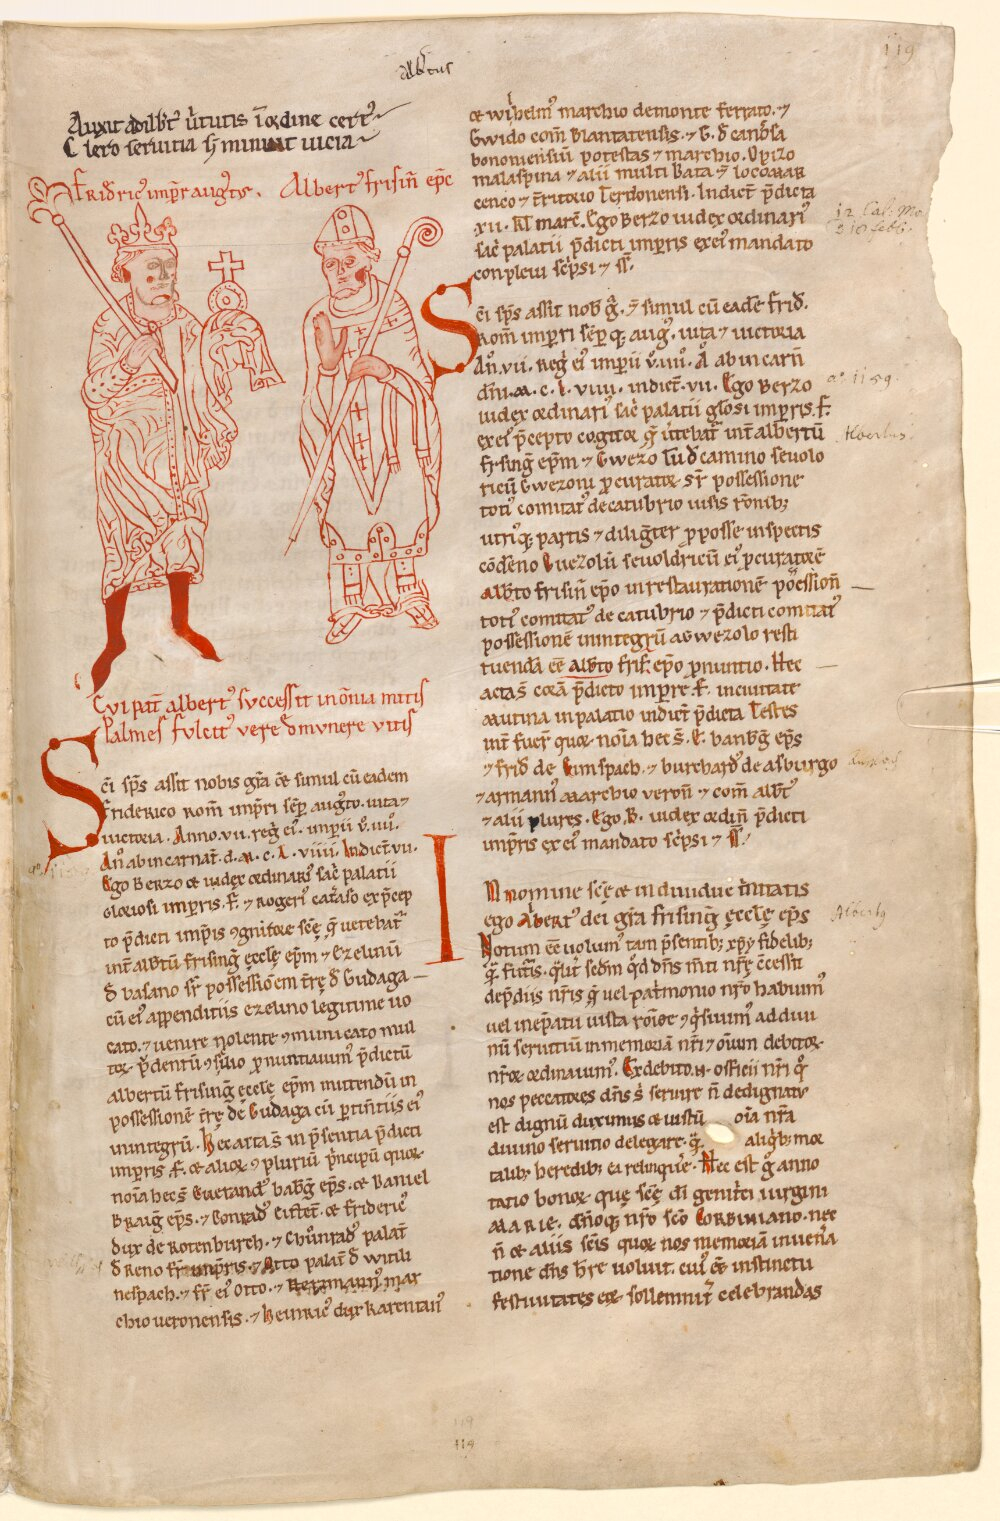 Albtus
119
Auxit adilbt' v̄tutis ī ordine cert'
Clero servitia h̄ minuit vicia
Fridric' imp̄r august'. Albert' frisin̄ ep̄c
Cui pat̄ albert' svccessit in ōnia mitis
Palmes fulcit' vere d̄ mvnere vitis
Sc̄i sp̄s assit nobis gr̄a c̄t̄ simul cū eadem
friderico rom̄ imp̄ri sēp augto. vita ⁊
victoria. Anno. vii. reḡ ei'. imp̄ii v̄. iiii'.
An̄ ab incarnat̄. d. m. c. L. viiii. Indict̄. vii.
Ego Berzo et iudex ordinari' sac̄ palatii
gloriosi imp̄ris. f̄. ⁊ rogeri' cataso ex p̄cep
to p̄dicti imp̄is ꝯgnitore scē q̄ vertebat̄
int̄ albtū frisinḡ ęcclę ep̄m ⁊ Ezelinū
d̄ basano sr̄ possessiōem t̄rę d̄ Gudaga
cū ei' appenditiis ezelino legitime vo
cato. ⁊ venire nolente ꝯmunicato mul
tor p̄dentū ꝯsilio p̄nuntiavim' p̄dictū
albertū frisinḡ ęcclę ep̄m mittendū in
possessionē t̄rę de Gudaga cū ꝑtin̄tiis ei'
inintegrū. Hec acta s̄ in p̄sentia p̄dicti
imp̄ris f̄. et alior ꝯplurium p̄ncipū quor
noīa hec s̄ Euerand' babḡ ep̄s. et Daniel
Braiḡ ep̄s. ⁊ Conrad' Eistet̄. et frideric'
dux de Rotenburch. ⁊ Chūnrad' palat̄
d̄ Reno fr̄ imp̄ris. ⁊ Otto palat̄ d̄ witili
nespach. ⁊ fr̄ ei' Otto. ⁊ Herzmann' mar
chio veronensis. ⁊ Heinric' dux karentan'
et wilhelm' marchio demonte ferrato. ⁊
Gwido com̄ Blantatensis. ⁊ G. d̄ canōsa
bononiensiū potestas ⁊ marchio. Opizo
malaspina ⁊ alii multi Data ⁊ loco mar
cenco ⁊ t̄ritorio Terdonensi. Indict̄ p̄dicta
xii. kl marc̄. Ego Berzo iudex ordinari'
sac̄ palatii p̄dicti imp̄ris ex ei' mandato
conplevi sc̄psi ⁊ ss̄.
12 Cal: Ma
Sc̄i sp̄s assit nob̄ gr̄. ⁊ simul cū eadē frid̄.
Rom̄ imp̄ri sēp q; aug'. vita ⁊ victoria
An̄. vii. reḡ ei' imp̄ii v̄. iiii'. A' ab incarn̄
dn̄i. m. c. l. viiii. indict̄. vii. Ego Berzo
a° 1159.
iudex ordinari' sac̄ palatii gl'osi imp̄ris. f̄.
ex ei' p̄cepto cogitor q̄ v̄tebat̄ int̄ albertū
Albertus.
frisinḡ ep̄m ⁊ Gwezo l'ū d̄ camino sevolo
ricū Gwezoni ꝑcuratorē sr̄ possessione
toti' comitat' de catubrio visis rōnib;
utriq; partis ⁊ diligēter ꝓposse inspectis
cōdēno Guezolū sevoldricū ei' ꝑcuratorē
albto frisin̄ ep̄o in restaurationē possession̄
toti' comitat' de catubrio ⁊ p̄dicti comitat'
possessionē inintegrū a Gwezolo resti
tuenda ēē albto fris̄ ep̄o ꝓnuntio. Hec
acta s̄ corā p̄dicto imp̄re f̄. in civitate
Mutina in palatio indict̄ p̄dicta Testes
int̄ fuer̄ quor noīa hec s̄. E. banbḡ ep̄s
⁊ frid̄ de Eimspach. ⁊ burchard' de asburgo
⁊ armann' marchio veron̄ ⁊ com̄ albt'
⁊ alii plures. Ego. B. iudex ordin̄ p̄dicti
imp̄ris ex ei' mandato sc̄psi ⁊ ss̄.
In nomine scē et individuę t̄nitatis
ego Albert' dei gr̄a frisinḡ ęcclę ep̄s
Alberty
Notum ēē volum' tam p̄sentib; xp̄i fidelib;
q̄ futis. qlit̄ sedm q'd dn̄s m̄ti nr̄ę c̄cessit
de p̄diis nr̄is q̄ vel pat̄monio nr̄o habuim'
vel in ep̄atu iusta rōīoē ꝯq̄sivim' ad divi
nū servitiū in memoriā nr̄i ⁊ oīum debitor
nr̄or ordinavim'. Ex debito. n. officii nr̄i q̄
nos peccatores dn̄s s' servire n̄ dedignat'
est dignū duximus et iustū oīa nr̄a
divino servitio delegare q̄ aliqb; mor
talib; heredib; ea relinqu'e. Hec est g° anno
tatio bonor quę scē dī genitc̄i virgini
MARIE. dn̄oq; nr̄o scō CORBINIANO. nec
n̄ et aliis scīs quor nos memoriā in vera
tione dn̄s hr̄e voluit. cui' c̄t̄ instinctu
festivitates eor sollemnit̄ celebrandas
119
114